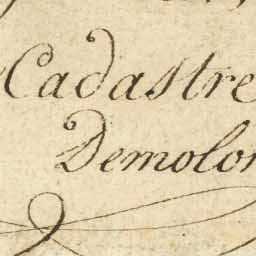 Cadastre
Demolon